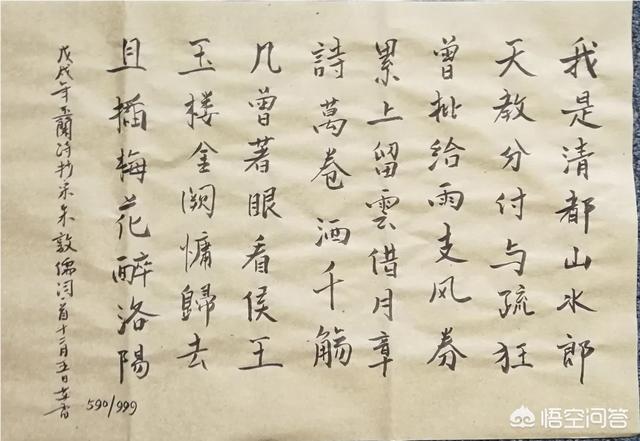 我是清都山水郎
天教分付与疏狂
曾批给雨支风券
累上留雲借月章
詩萬卷酒千觴
几曾著眼看侯王
玉楼金阙慵歸去
且插梅花醉洛陽
戊戌年玉蘭诗抄宋朱敦儒词首十二月五日
590/999
悟空问答